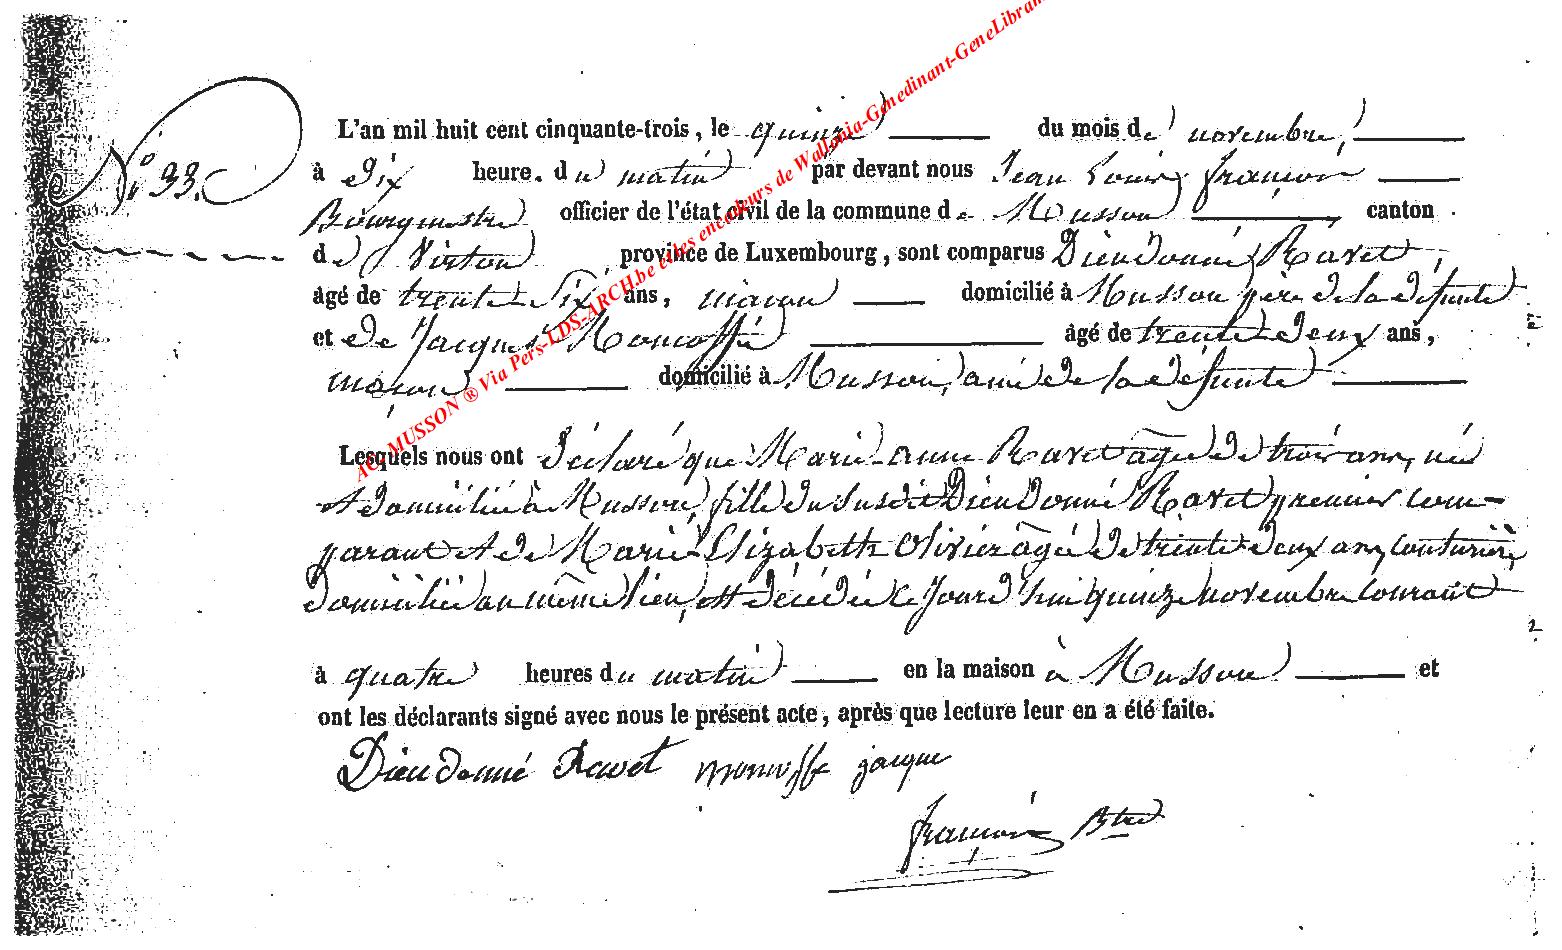 L'an mil huit cent cinquante-trois, le quinze du mois de novembre,
N° 33. à Dix heure. du matin par devant nous Jean Louis françois
Bourgmestre officier de l'état civil de la commune de Musson canton
de Virton province de Luxembourg, sont comparus Dieudonné Ravet,
âgé de trente-Six ans, maçon domicilié à Musson père de la défunte
et de Jacques âgé de trente-deux ans,
maçon domicilié à Musson, ami de la défunte
Lesquels nous ont déclaré que Marie-anne Ravet âgée de trois ans, née
et domiciliée à Musson, fille du susdit Dieudonné Ravet premier com-
parant et de Marie-Elizabeth Olivier âgée de trente-deux ans, couturière,
domiciliée au même lieu, est décédée ce jourd'hui quinze novembre courant
à quatre heures du matin en la maison à Musson et
ont les déclarants signé avec nous le présent acte, après que lecture leur en a été faite.
Dieudonné Ravet jacque
françois Btre
AC. MUSSON ® Via Pers-LDS-ARCH.be et les encodeurs de Wallonia-Genedinant-GeneLibran